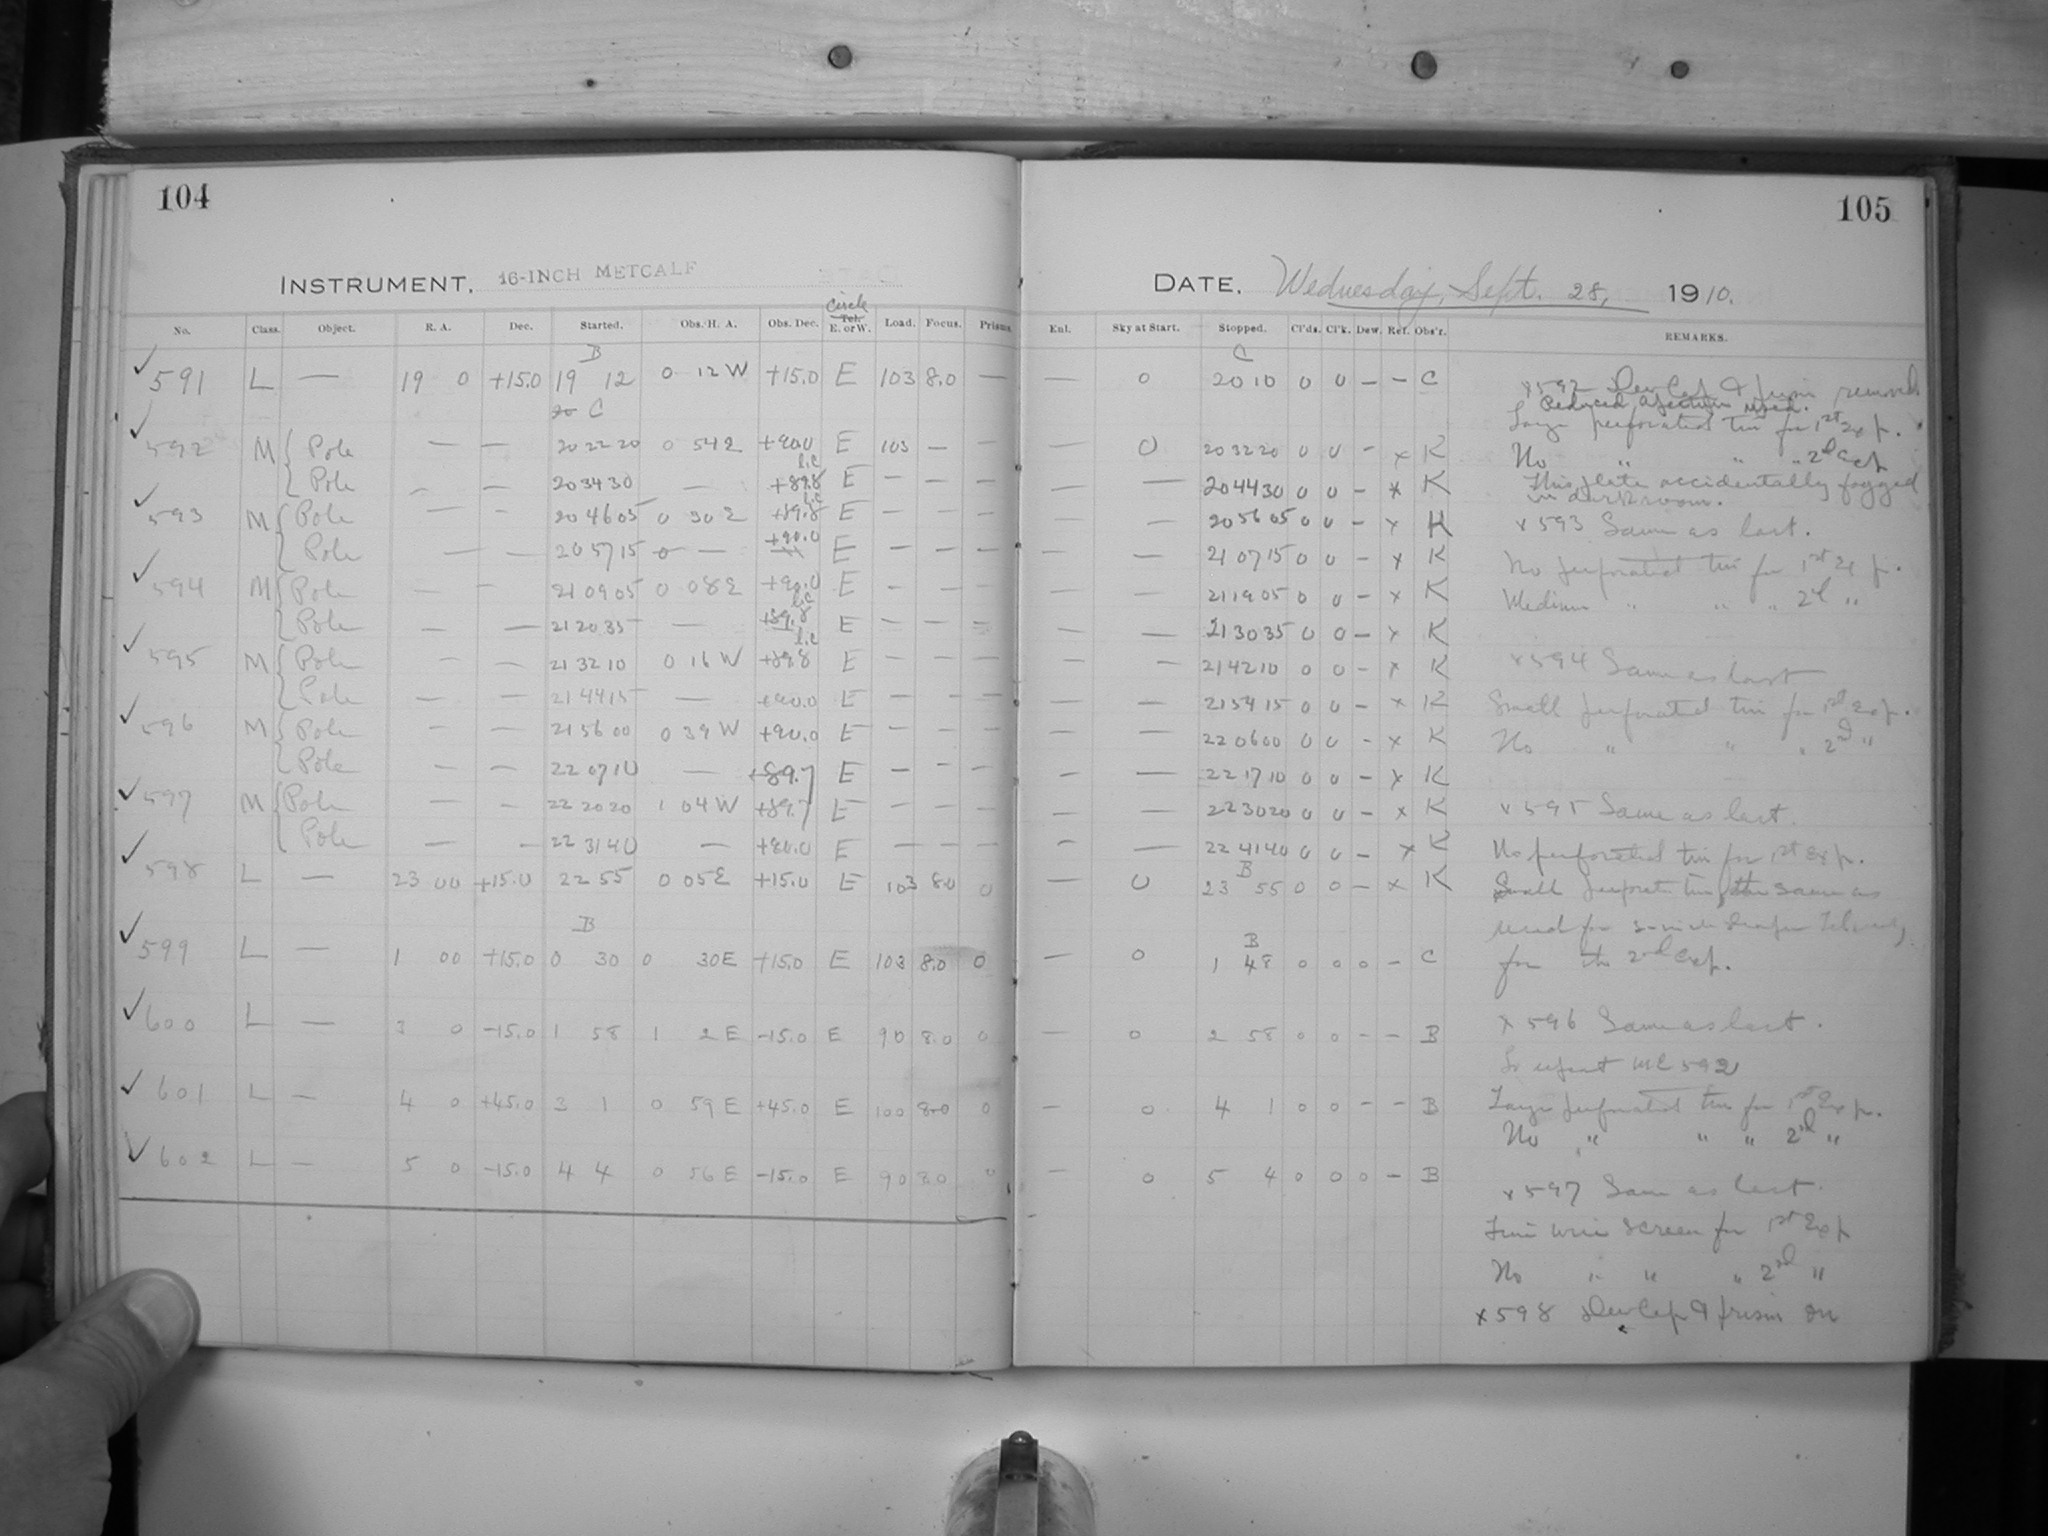 104
INSTRUMENT. 16-INCH METCALF
No. Class. Object. R. A. Dec. Started. Obs. H. A. Obs. Dec. Circle Tel. E. or W. Load. Focus. Prisms
B
✓ 591 L — 19 0 +15.0 19 12 0 12 W +15.0 E 103 8.0 —
20 C
✓ 592 M { Pole — — 20 22 20 0 54 E +90.0 E 103 — —
l.c
Pole — — 20 34 30 — +89.8 E — — —
l.c
✓ 593 M { Pole — — 20 46 05 0 30 E +89.8 E — — —
+90.0
Pole — — 20 57 15 0 — E — — —
✓ 594 M { Pole — — 21 09 05 0 08 E +90.0 E — — —
l.c
Pole — — 21 20 35 — +89.8 E — — —
l.c
✓ 595 M { Pole — — 21 32 10 0 16 W +89.8 E — — —
Pole — — 21 44 15 — +90.0 E — — —
✓ 596 M { Pole — — 21 56 00 0 39 W +90.0 E — — —
Pole — — 22 07 10 — +89.7 E — — —
✓ 597 M { Pole — — 22 20 20 1 04 W +89.7 E — — —
Pole — — 22 31 40 — +90.0 E — — —
✓ 598 L — 23 00 +15.0 22 55 0 05 E +15.0 E 103 8.0 0
B
✓ 599 L — 1 00 +15.0 0 30 0 30 E +15.0 E 103 8.0 0
✓ 600 L — 3 0 -15.0 1 58 1 2 E -15.0 E 90 8.0 0
✓ 601 L — 4 0 +45.0 3 1 0 59 E +45.0 E 100 8.0 0
✓ 602 L — 5 0 -15.0 4 4 0 56 E -15.0 E 90 8.0 0
105
DATE. Wednesday, Sept. 28, 1910.
Enl. Sky at Start. Stopped. Cl'ds. Cl'k. Dew. Ref. Obs'r. REMARKS.
C
— 0 20 10 0 0 — — C
— 0 20 32 20 0 0 — x K
— — 20 44 30 0 0 — x K
— — 20 56 05 0 0 — x K
— — 21 07 15 0 0 — x K
— — 21 19 05 0 0 — x K
— — 21 30 35 0 0 — x K
— — 21 42 10 0 0 — x K
— — 21 54 15 0 0 — x K
— — 22 06 00 0 0 — x K
— — 22 17 10 0 0 — x K
— — 22 30 20 0 0 — x K
— — 22 41 40 0 0 — x K
B
— 0 23 55 0 0 — x K
B
— 0 1 48 0 0 0 — C
— 0 2 58 0 0 — — B
— 0 4 1 0 0 — — B
— 0 5 4 0 0 0 — B
x592 Dew Cap & prism removed
Reduced aperture used.
Large perforated tin for 1st Exp.
No " " " 2d Exp
This plate accidentally fogged
in darkroom.
x593 Same as last.
No perforated tin for 1st Exp.
Medium " " " 2d "
x594 Same as last
Small perforated tin for 1st Exp.
No " " " 2d "
x595 Same as last.
No perforated tin for 1st Exp.
Small tin, the same as
used for
for the 2nd Exp.
x596 Same as last.
To repeat MC 592
Large perforated tin for 1st Exp.
No " " " 2d "
x597 Same as last.
Fine wire screen for 1st Exp
No " " " 2nd "
x598 Dew Cap & prism on